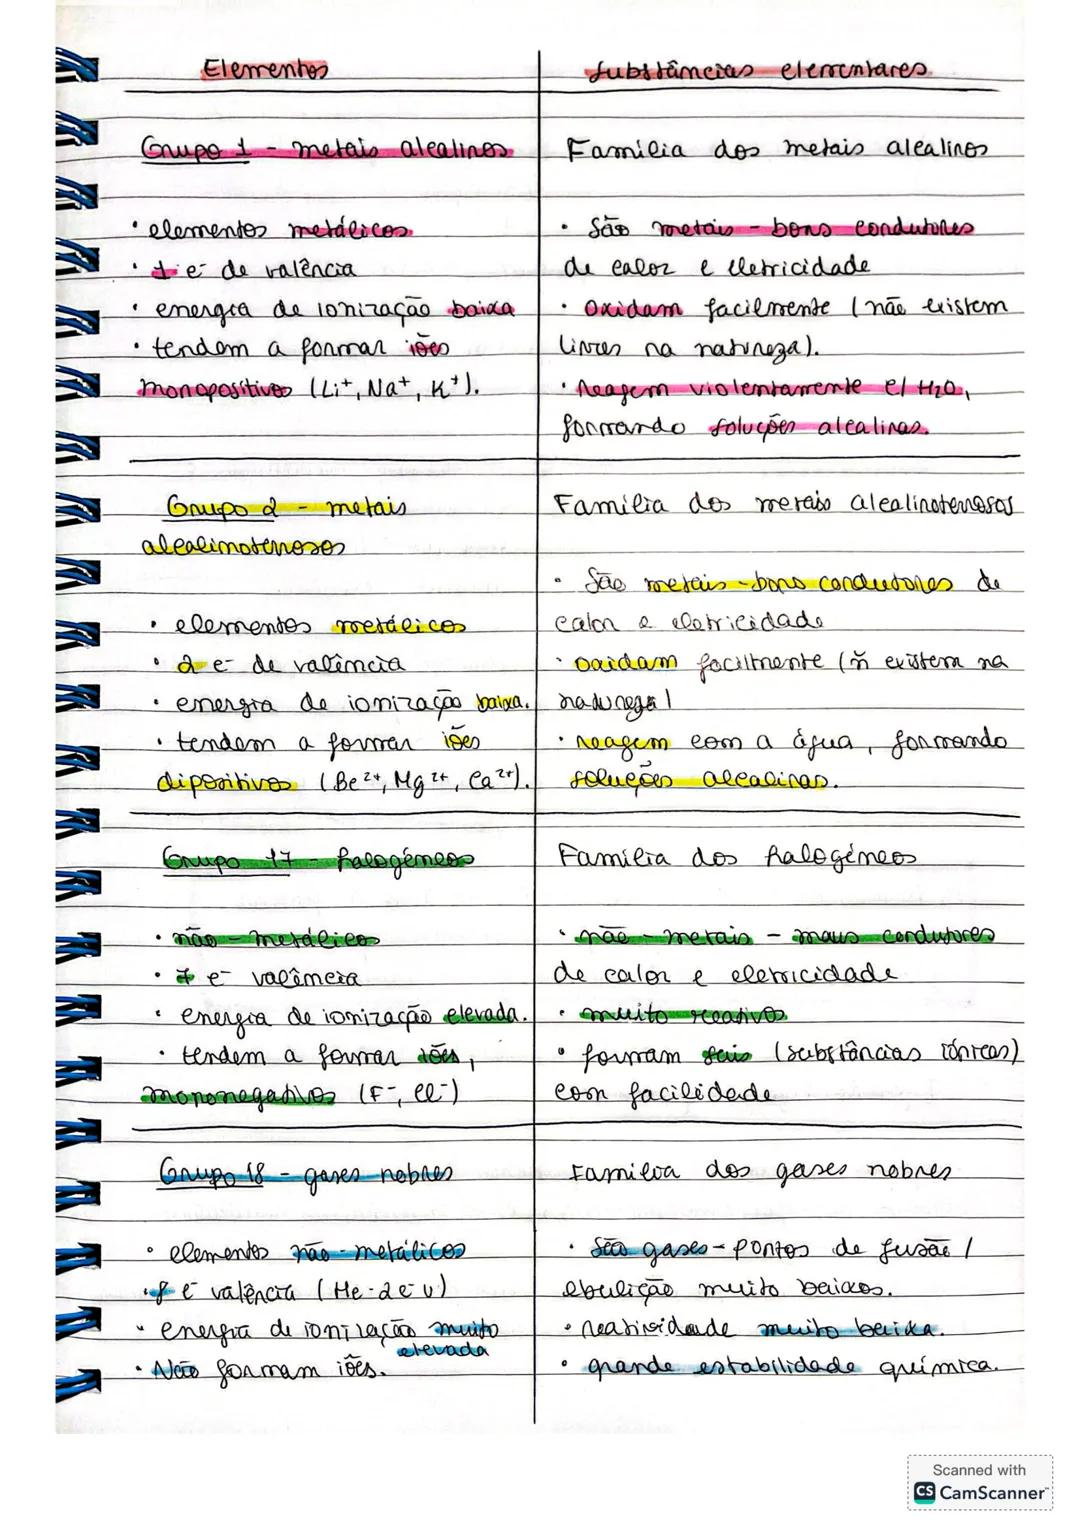 Elementos
Substâncias elementares
Grupo 1 - metais alcalinos
Família dos metais alcalinos
• elementos metálicos
• 1 e- de valência
• energia de ionização baixa
• tendem a formar iões
monopositivos (Li+, Na+, K+).
• São metais - bons condutores
de calor e eletricidade
• Oxidam facilmente (não existem
livres na natureza).
• Reagem violentamente c/ H2O,
formando soluções alcalinas.
Grupo 2 - metais
alcalinoterrosos
Família dos metais alcalinoterrosos
• elementos metálicos
• 2 e- de valência
• energia de ionização baixa.
• tendem a formar iões
dipositivos (Be2+, Mg2+, Ca2+).
• São metais - bons condutores de
calor e eletricidade
• oxidam facilmente (ñ existem na
natureza)
• reagem com a água, formando
soluções alcalinas.
Grupo 17 - halogéneos
Família dos halogéneos
• não - metálicos
• 7 e- valência
• energia de ionização elevada.
• tendem a formar iões,
mononegativos (F-, Cl-)
• não - metais - maus condutores
de calor e eletricidade
• muito reativos
• formam sais (substâncias iónicas)
com facilidade
Grupo 18 - gases nobres
Família dos gases nobres
• elementos não - metálicos
• 8 e- valência (He - 2 e- v)
• energia de ionização muito
elevada
• Não formam iões.
• São gases - pontos de fusão /
ebulição muito baixos.
• reatividade muito baixa.
• grande estabilidade química.
Scanned with
CS CamScanner